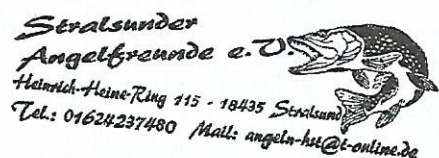 Stralsunder
Angelfreunde e.V.
Heinrich-Heine-Ring 115 - 18435 Stralsund
Tel.: 01624237480 Mail: angeln-hst@t-online.de